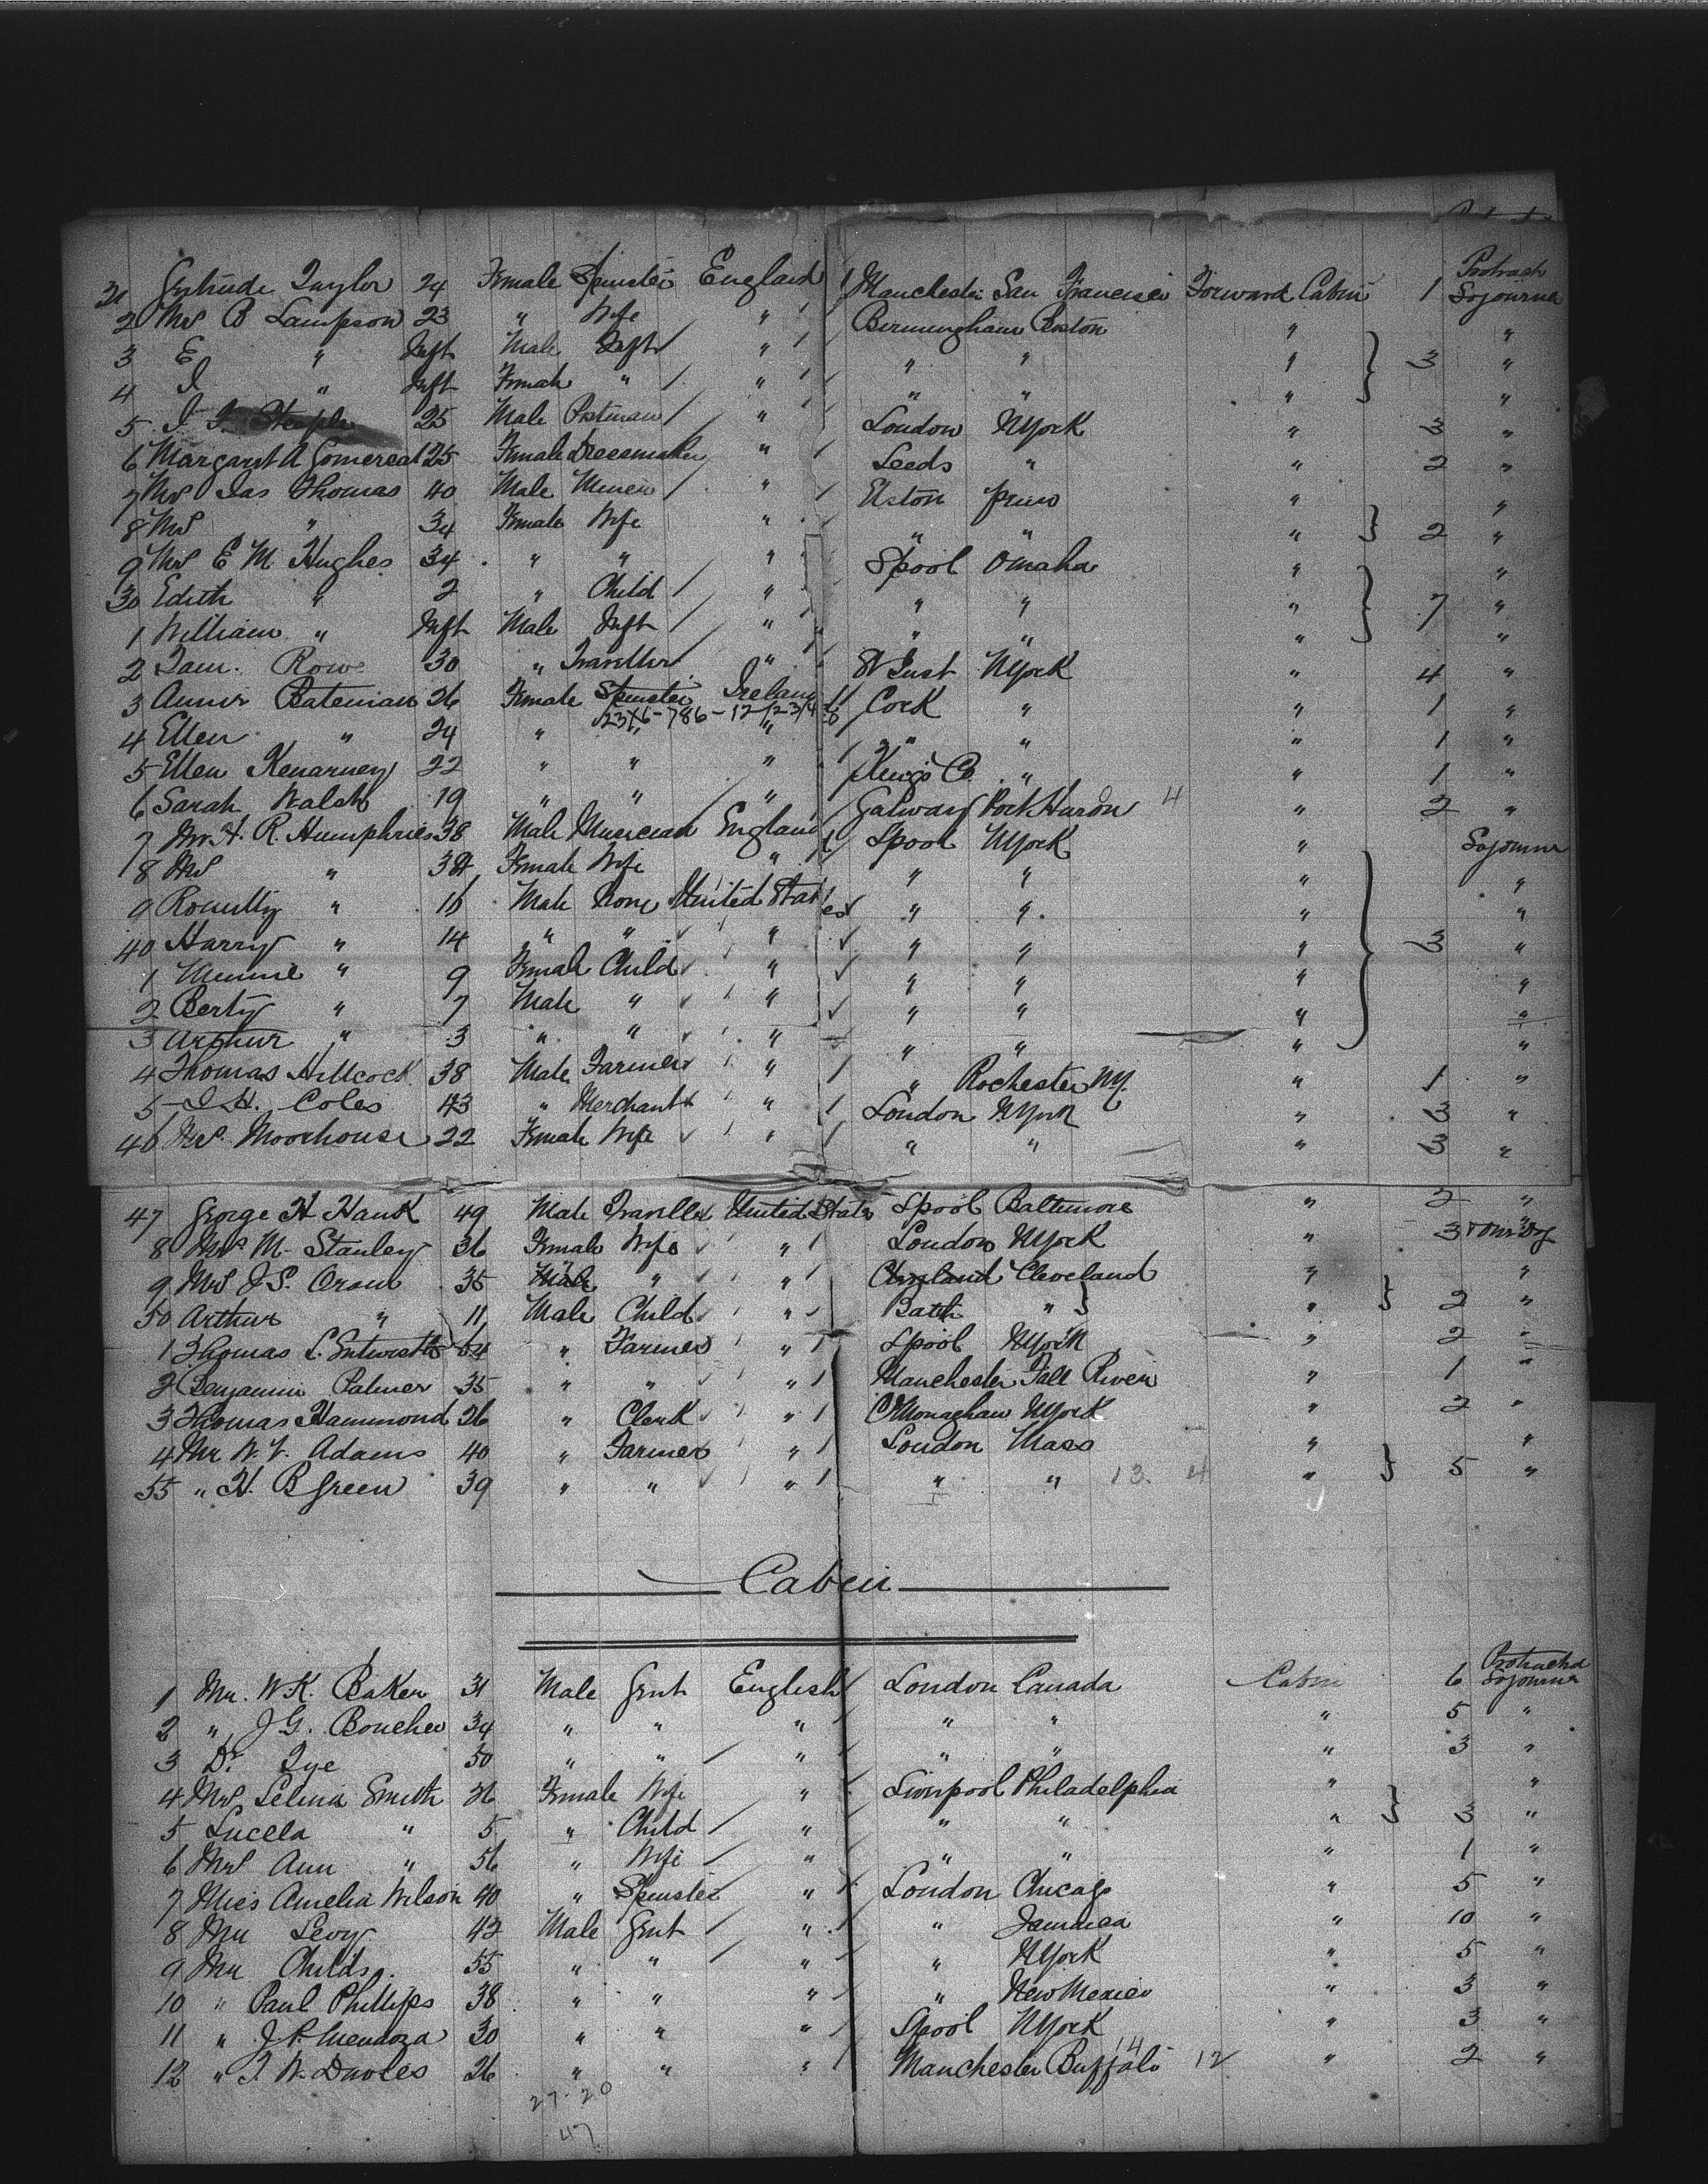 21 Gertrude Taylor 24 Female Spinster England Manchester San Francisco Forward Cabin 1 Sojourn
2 Mrs B Lampson 23 " Wife " Birmingham Boston " "
3 E " Inft Male Inft " " " " 3 "
4 I " Inft Female " " " " " "
5 25 Male Postman " London NYork " 3 "
6 Margaret A 25 Female Dressmaker " Leeds " " 2 "
7 Mr Jas Thomas 40 Male Miner " " "
8 Mrs " 34 Female Wife " " " " 2 "
9 Mrs E M Hughes 34 " " " Lpool Omaha " "
30 Edith " 2 " Child " " " " 7 "
1 William " Inft Male Inft " " " " "
2 Rowe 30 " Traveller " St Just NYork " 4 "
3 Annie Bateman 26 Female Spinster Ireland Cork " " 1 "
23X6-786-12/23/4
4 Ellen " 24 " " " " " " 1 "
5 Ellen Kenarney 22 " " " Kings Co. " " 1 "
6 Sarah Walsh 19 " " " Galway Port Huron 4 " 2 "
7 Mr H. R. Humphries 38 Male Musician England Lpool NYork " Sojourn
8 Mrs " 38 Female Wife " " " " "
9 Romilly " 16 Male None United States " " " "
40 Harry " 14 " " " " " " 3 "
1 Minnie " 9 Female Child " " " " "
2 Berty " 7 Male " " " " " "
3 Arthur " 3 " " " " " " "
4 Thomas Hillcock 38 Male Farmer " " Rochester NY. " 1 "
5 J. H. Coles 43 " Merchant " London NYork " 3 "
46 Mrs. Moorhouse 22 Female Wife " " " " 3 "
47 George H Hank 49 Male Traveller United States Lpool Baltimore " 2 "
8 Mrs M. Stanley 36 Female Wife " London NYork " 3
9 Mrs J S. Oram 35 Male " " England Cleveland " "
50 Arthur " 11 Male Child " Bath " " 2 "
1 Thomas L. Entwistle 64 " Farmer " Lpool NYork " 2 "
2 Benjamin Palmer 35 " " " Manchester Fall River " 1 "
3 Thomas Hammond 26 " Clerk " Monaghan NYork " 2 "
4 Mr W. V. Adams 40 " Farmer " London Mass " "
55 " H. B Green 39 " " " " " 13. 4 " 5 "
Cabin
1 Mr. W. K. Baker 31 Male Gent English London Canada Cabin 6 Protracted Sojourn
2 " J G. Boucher 34 " " " " " " 5 "
3 Dr. Tye 50 " " " " " " 3 "
4 Mrs Selina Smith 26 Female Wife " Liverpool Philadelphia " "
5 Lucela " 5 " Child " " " " 3 "
6 Mrs Ann " 56 " Wife " " " " 1 "
7 Miss Amelia Wilson 40 " Spinster " London Chicago " 5 "
8 Mr Levy 42 Male Gent " " Jamaica " 10 "
9 Mr Childs. 55 " " " " NYork " 5 "
10 " Paul Phillips 38 " " " " New Mexico " 3 "
11 " J. P. Mendoza 30 " " " Lpool NYork " 3 "
12 " T. W. Davies 26 " " " Manchester Buffalo 14 12 " 2 "
27-20
47